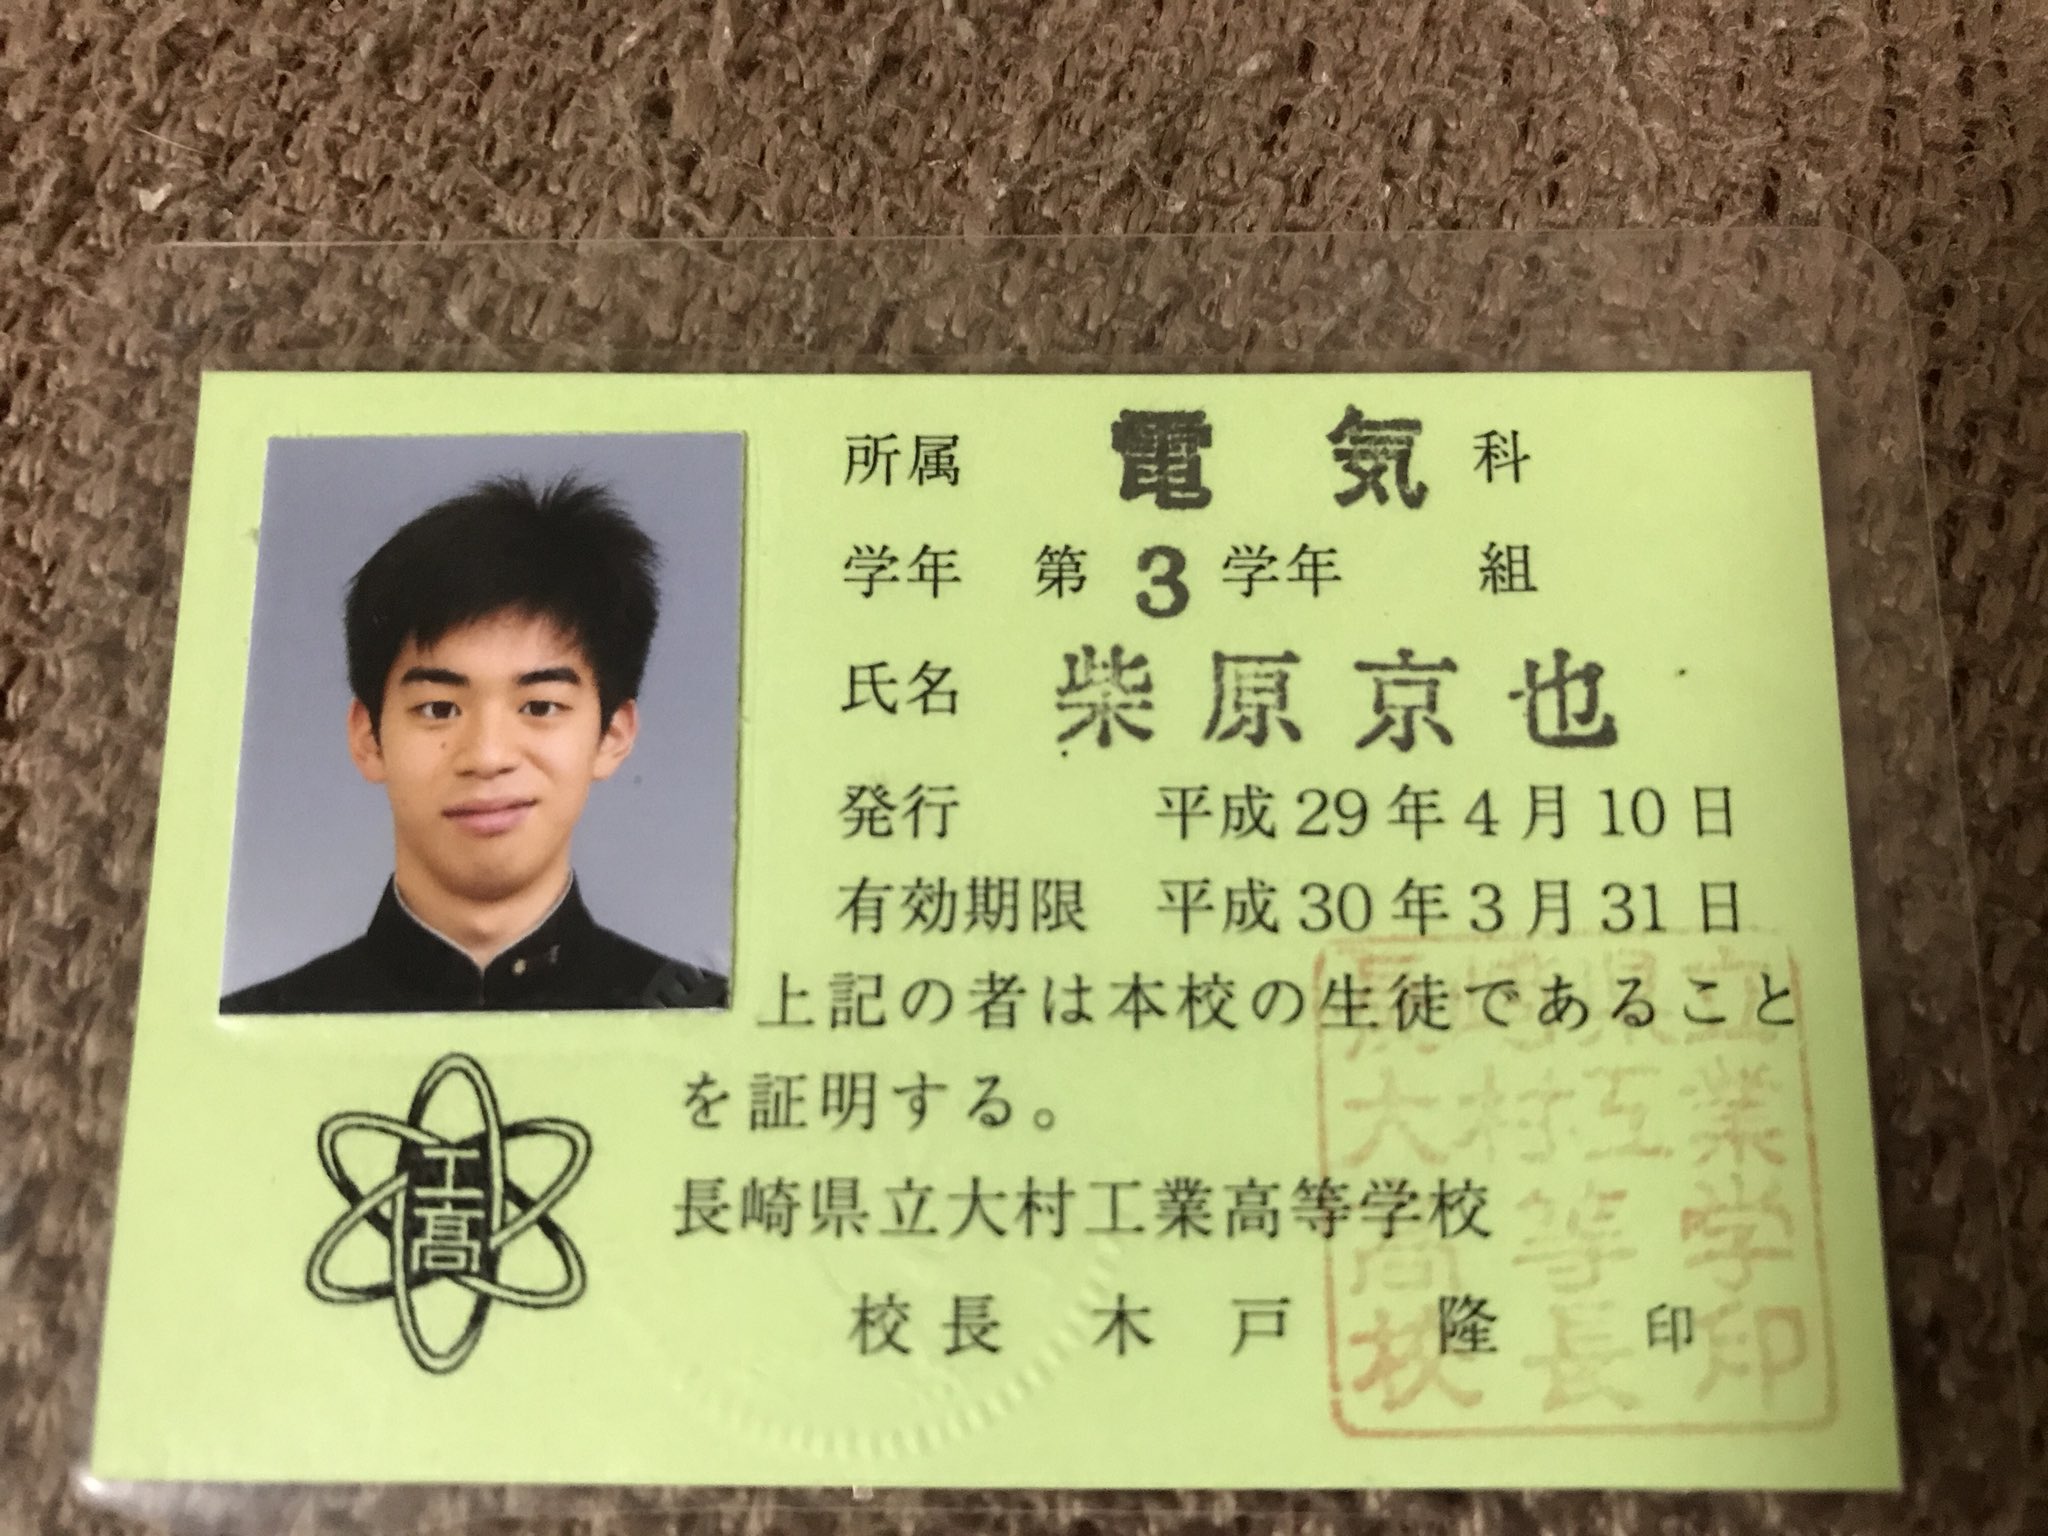 所属 電気科
学年 第3学年 組
氏名 柴原京也
発行 平成29年4月10日
有効期限 平成30年3月31日
上記の者は本校の生徒であること
を証明する。
長崎県立大村工業高等学校
校長 木戸 隆 印
工高
長崎県立
大村工業
高等学
校長印